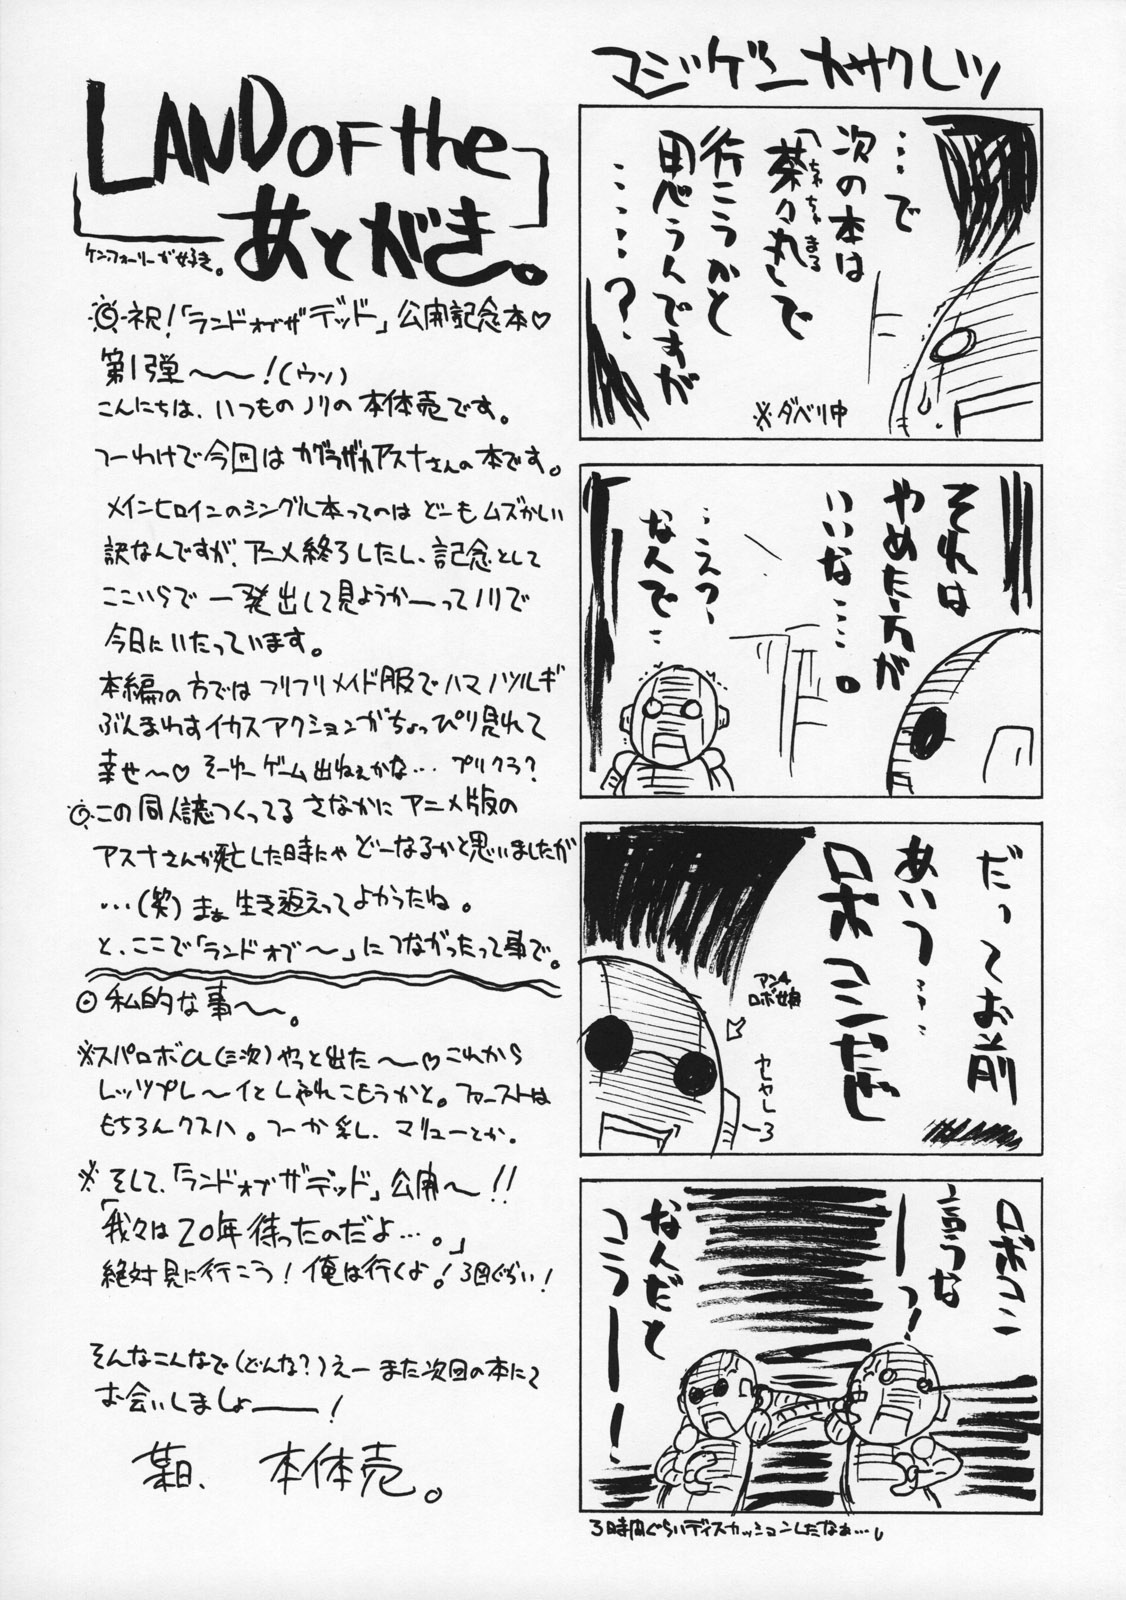 マジゲンカサクレツ
…で
次の本は
「茶々丸」で
ちゃちゃまる
行こうかと
思うんですが
……?
※ダベリ中
それは
やめた方が
いいな…。
…えっ、
なんで…
だってお前
あいつ…
ロボコンだぜ
アンチ
ロボ娘
ロボコン
言うな
ーっ!
なんだと
コラーー!
3時間ぐらいディスカッションしたなぁ…。
LAND OF the
あとがき。
ケンフォーリーが好き。
◎祝!「ランドオブザデッド」公開記念本♡
第1弾〜〜!(ウソ)
こんにちは、いつものノリの本体売です。
つーわけで今回はカグラザカアスナさんの本です。
メインヒロインのシングル本ってのはどーもムズかしい
訳なんですが、アニメ終了したし、記念として
ここいらで一発出して見ようかーってノリで
今日にいたっています。
本編の方ではフリフリメイド服でハマノツルギ
ぶんまわすイカスアクションがちょっぴり見れて
幸せ〜♡そーゆーゲーム出ねぇかな…プリクラ?
◎この同人誌つくってるさなかにアニメ版の
アスナさんが死亡した時にゃどーなるかと思いましたが
…(笑)まぁ生き返えってよかったね。
と、ここで「ランドオブ〜」につながったって事で。
◎私的な事〜。
※スパロボα(三次)やっと出た〜♡これから
レッツプレ〜イとしゃれこもうかと。ファーストは
もちろんクスハ。つーか乳、マリューとか。
※そして、「ランドオブザデッド」公開〜!!
「我々は20年待ったのだよ…。」
絶対見に行こう!俺は行くよ!3回ぐらい!
そんなこんなで(どんな?)えーまた次回の本にて
お会いしましょーー!
某日、本体売。